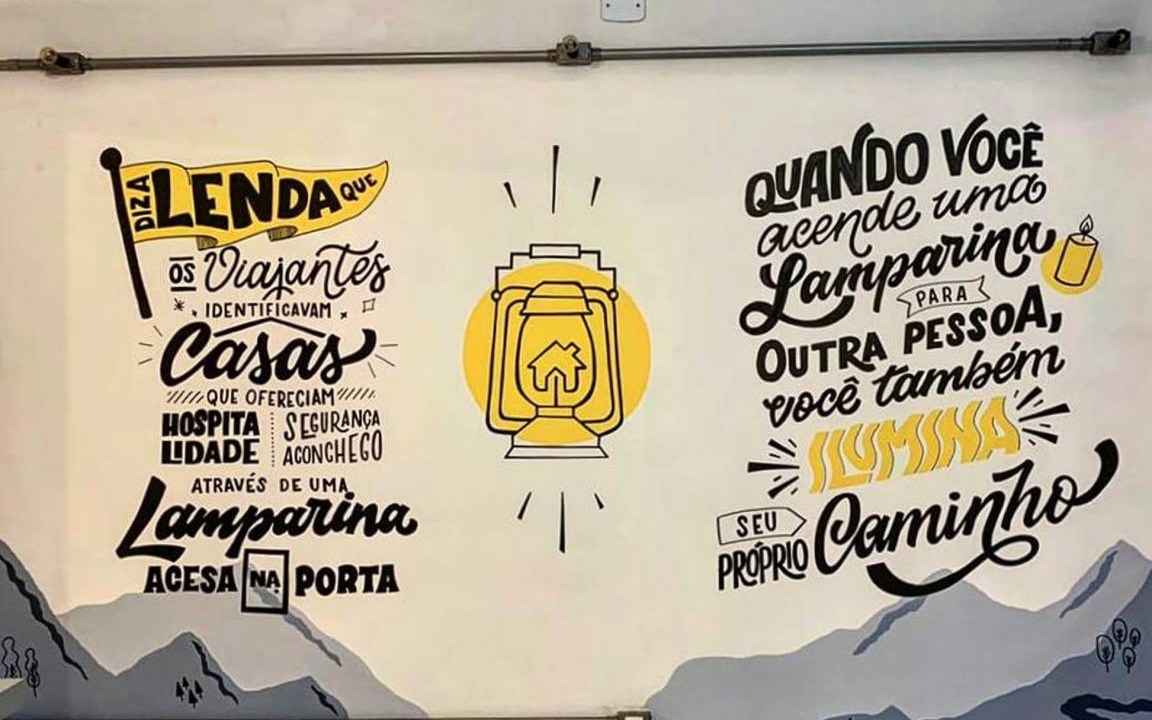 DIZ A LENDA QUE
OS Viajantes
IDENTIFICAVAM
Casas
QUE OFERECIAM
HOSPITA
LIDADE
SEGURANÇA
ACONCHEGO
ATRAVÉS DE UMA
Lamparina
ACESA NA PORTA
QUANDO VOCÊ
acende uma
Lamparina
PARA
OUTRA PESSOA,
você também
ILUMINA
SEU
PRÓPRIO Caminho